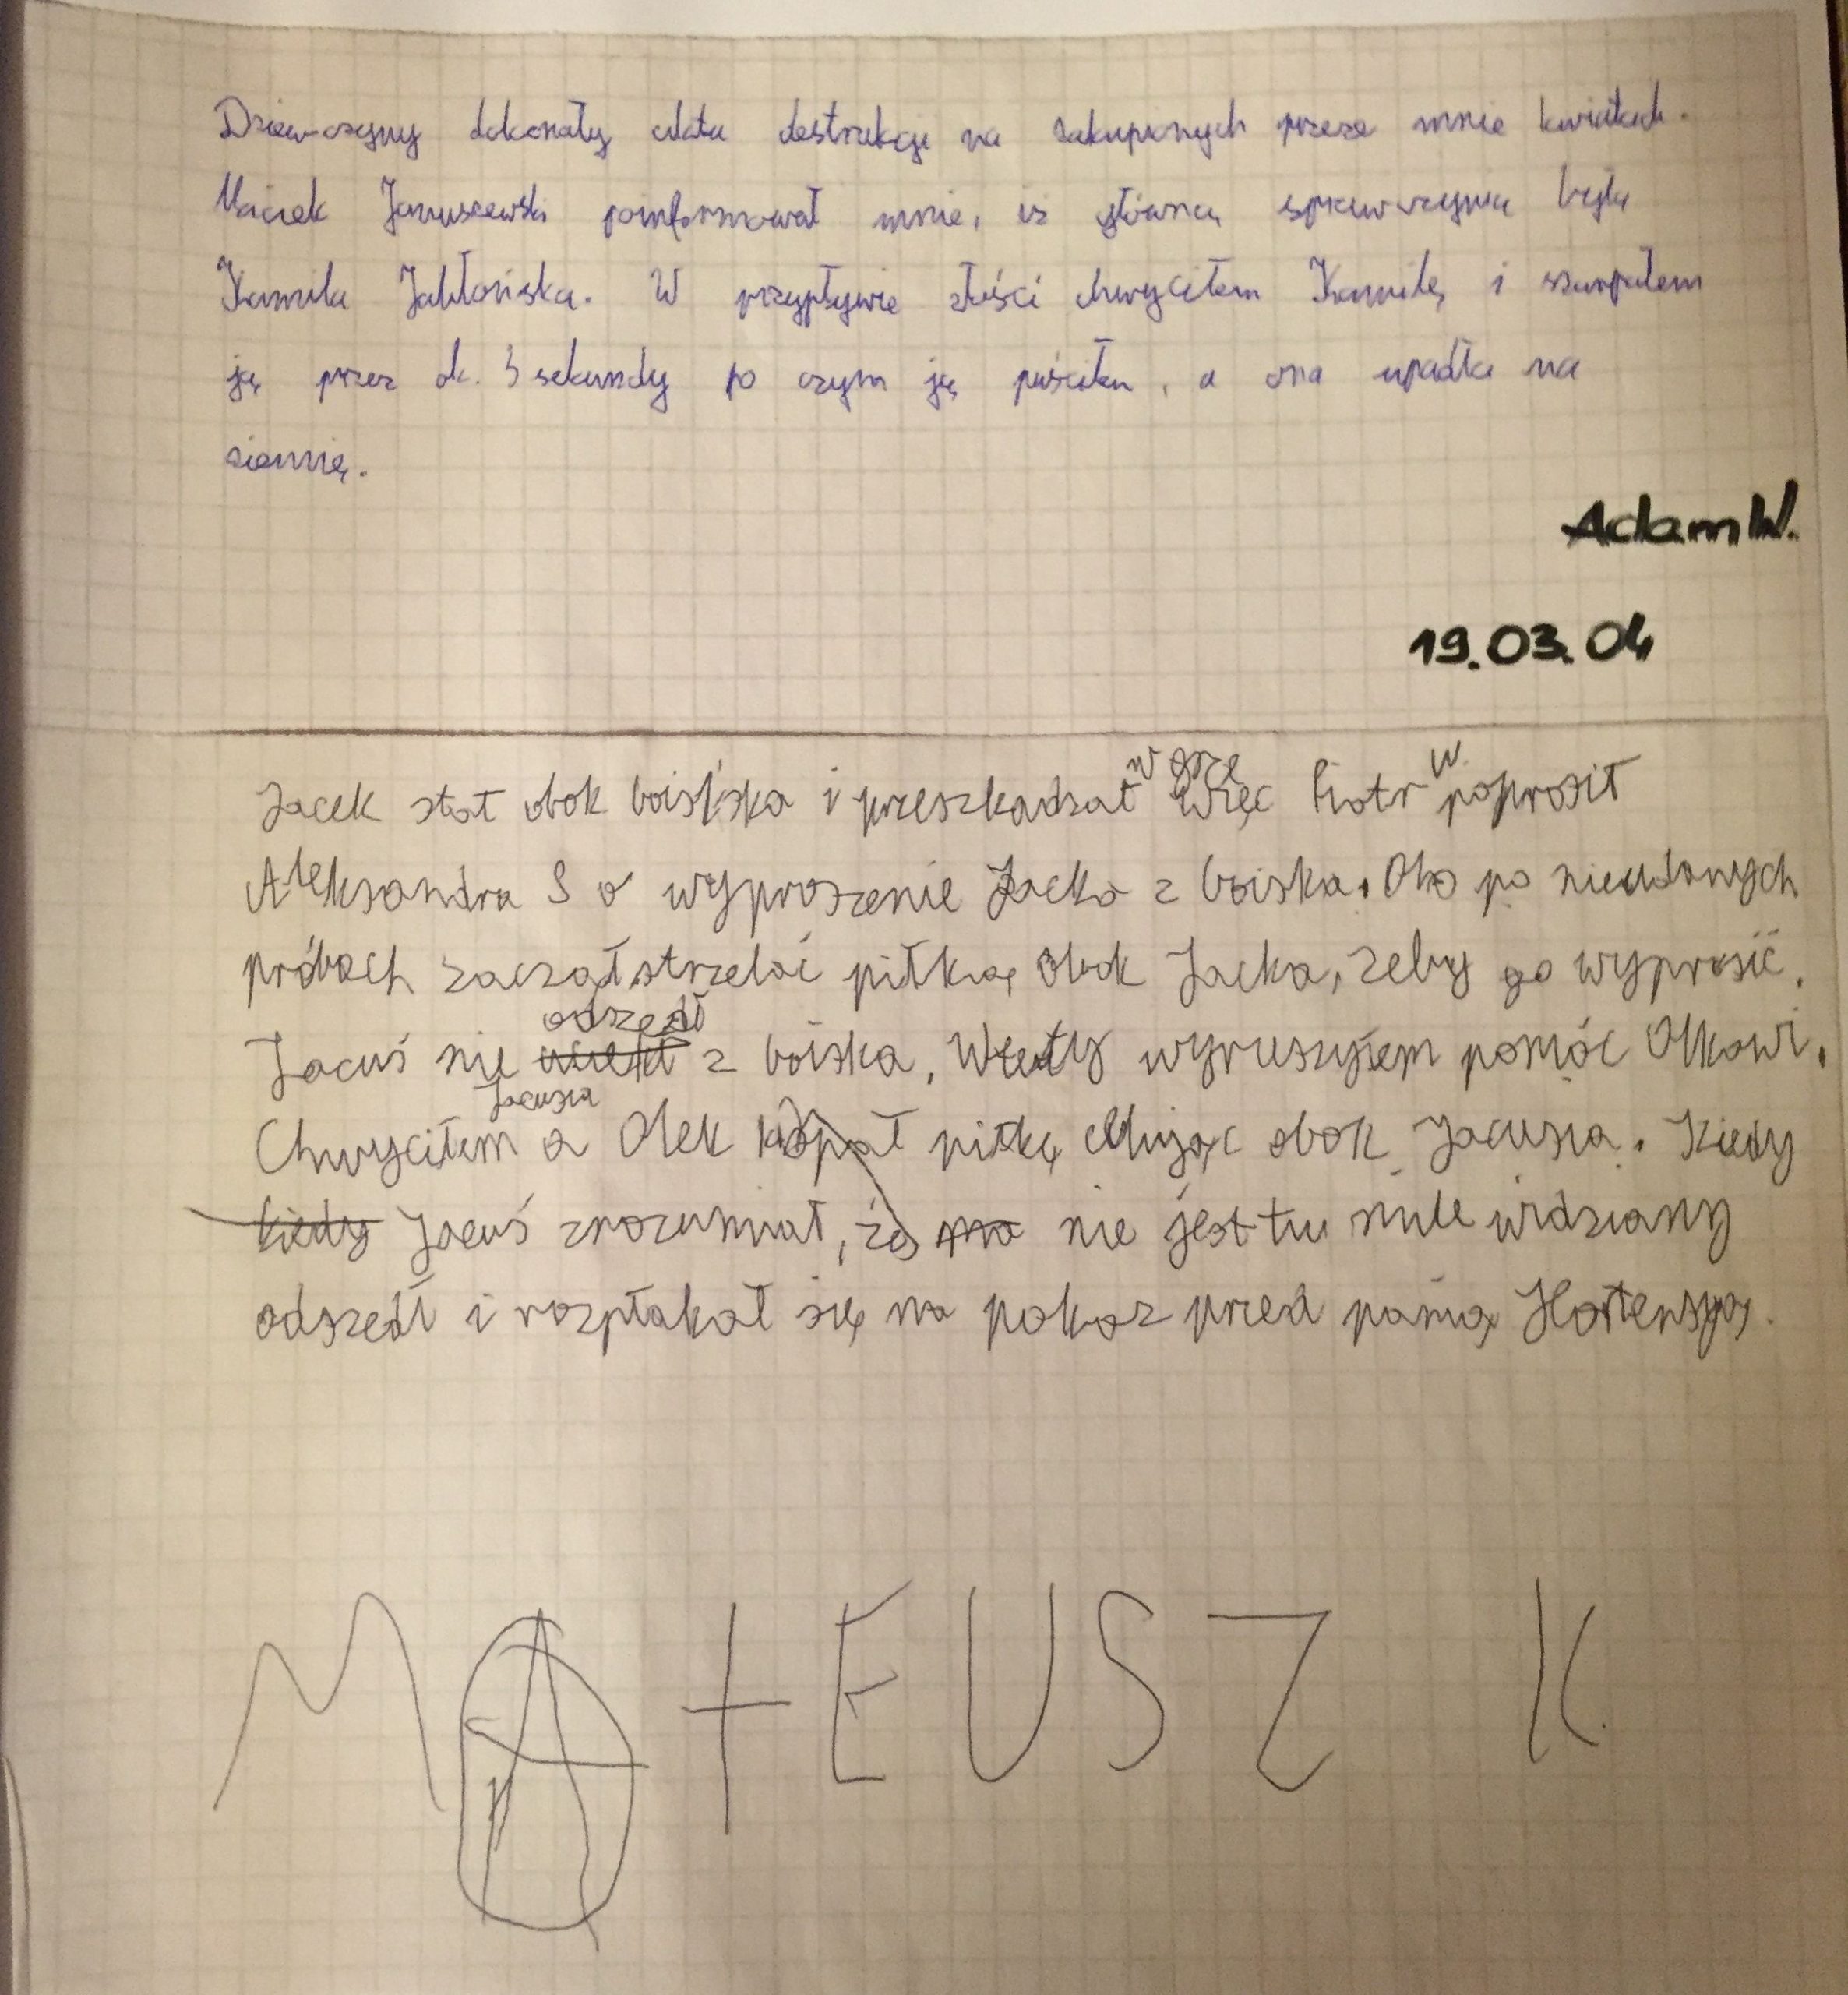 Dziewczyny dokonały aktu destrukcji na zakupionych przeze mnie kwiatach.
Maciek Januszewski poinformował mnie, iż główną sprawczynią była
Kamila Jabłońska. W przypływie złości chwyciłem Kamilę i szarpałem
ją przez ok. 3 sekundy po czym ją puściłem, a ona upadła na
ziemię.
Adam W.
19.03.04
Jacek stał obok boiska i przeszkadzał w grę więc Piotr W. poprosił
Aleksandra S o wyproszenie Jacka z boiska. Olo po nieudanych
próbach zaczął strzelać piłką obok Jacka, żeby go wyprosić.
Jacuś nie odszedł z boiska, Wtedy wyruszyłem pomóc Olkowi.
Chwyciłem Jacusia a Olek kopał piłkę celując obok Jacusia. Kiedy
kiedy Jacuś zrozumiał, że nie jest tu mile widziany
odszedł i rozpłakał się na pokaz przed panią Hortensją.
MATEUSZ K.